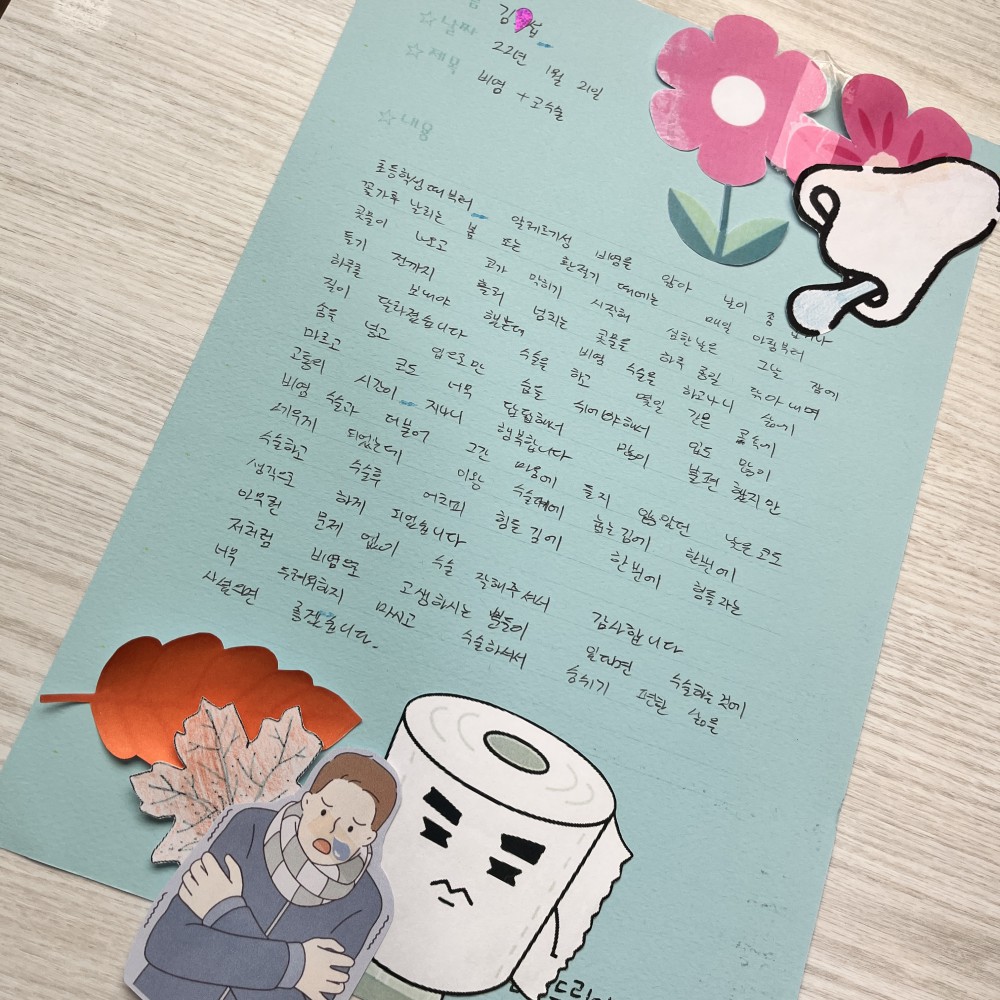 김 섭
☆ 날짜 22년 1월 21일
☆ 제목 비염 + 코수술
☆ 내용
초등학생때부터 알레르기성 비염을 앓아 날이
꽃가루 날리는 봄 또는 환절기 때에는 매일 아침부터
콧물이 나오고 코가 막히기 시작해 심한날은 그날 잠에
들기 전까지 흘러 넘치는 콧물을 하루 종일 닦아내며
하루를 보내야 했는데 비염 수술을 하고나니 삶에
질이 달라졌습니다 수술을 하고 몇일 간은 콧속에
솜을 넣고 입으로만 숨을 쉬어야해서 입도 많이
마르고 코도 너무 답답해서 많이 불편 했지만
고통의 시간이 지나니 행복합니다
비염 수술과 더불어 그간 마음에 들지 않았던 낮은 코도
세우게 되었는데 이왕 수술대에 눕는김에 한번에
수술하고 수술후 어차피 힘든 김에 한번에 힘들라는
생각으로 하게 되었습니다
아무런 문제 없이 수술 잘해주셔서 감사합니다
저처럼 비염으로 고생하시는 분들이 있다면 수술하는것에
너무 두려워하지 마시고 수술하셔서 숨쉬기 편한 삶을
사셨으면 좋겠습니다.